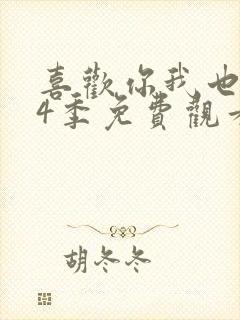 喜歡你我也
4季免費觀
胡冬冬